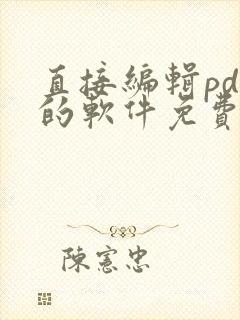 直接編輯pd
的軟件免費
陳憲忠